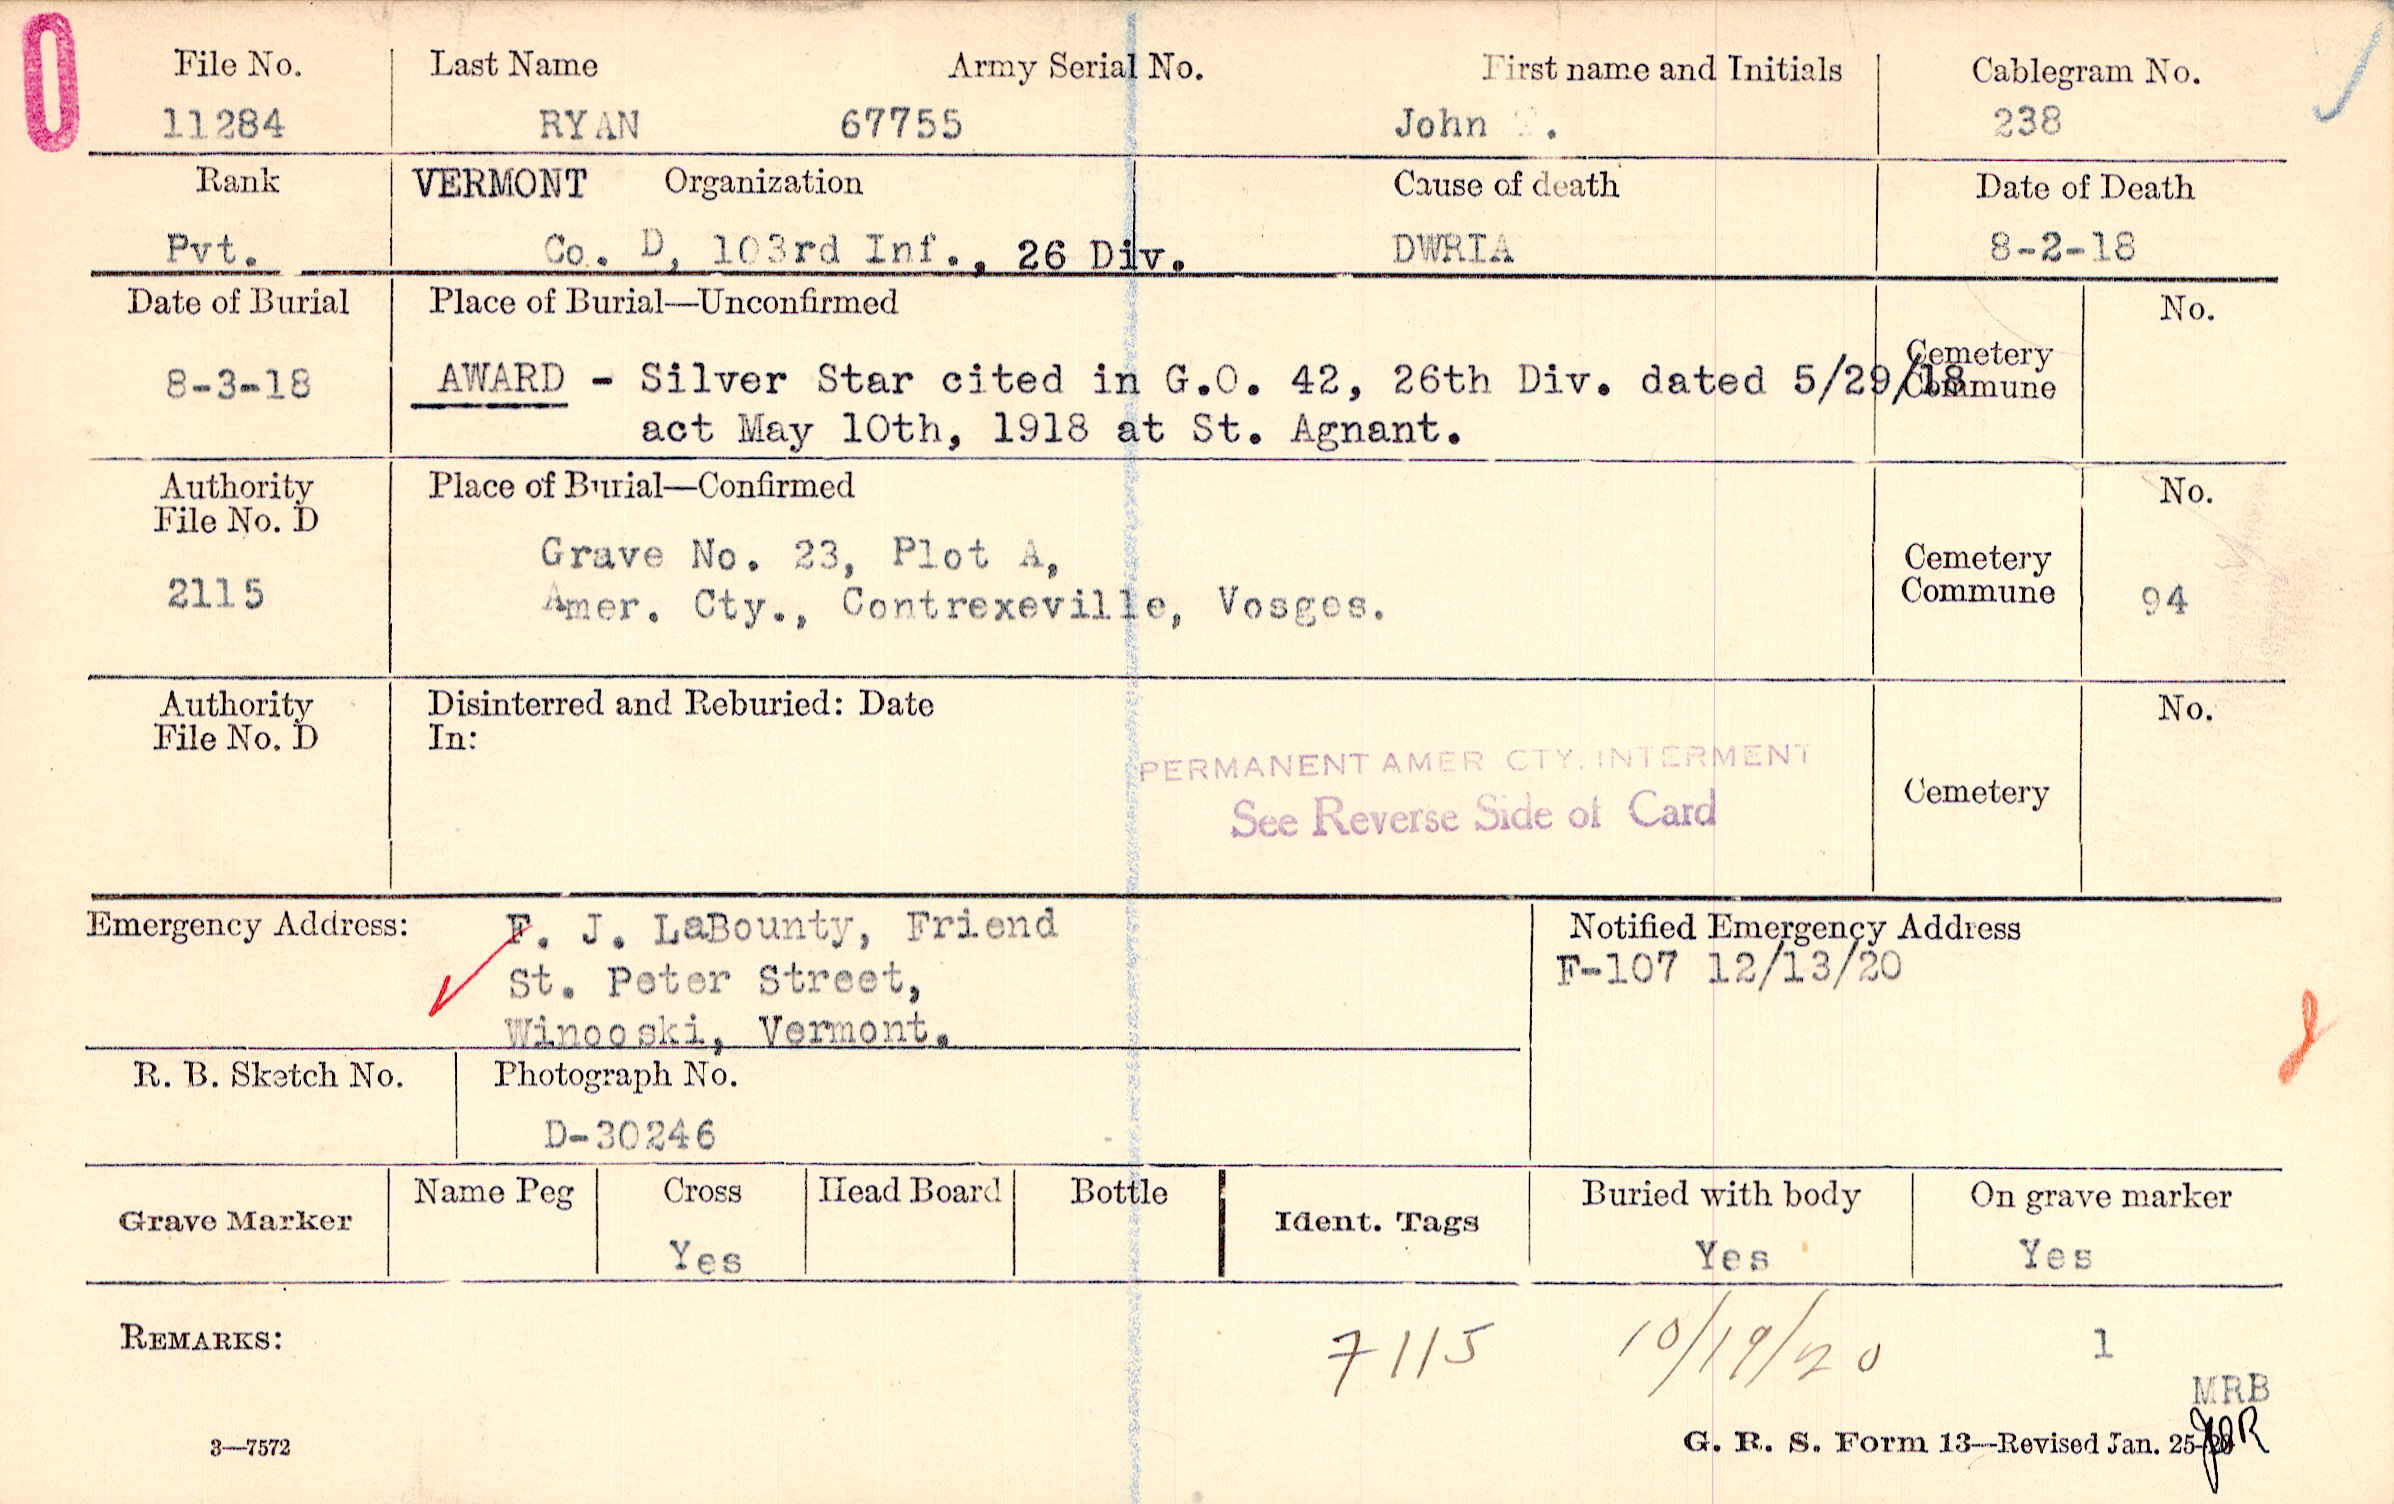 File No. Last Name Army Serial No. First name and Initials Cablegram No.
11284 RYAN 67755 John . 238
Rank VERMONT Organization Cause of death Date of Death
Pvt. Co. D, 103rd Inf., 26 Div. DWRIA 8-2-18
Date of Burial Place of Burial—Unconfirmed No.
Cemetery
Commune
8-3-18 AWARD - Silver Star cited in G.O. 42, 26th Div. dated 5/29/18
act May 10th, 1918 at St. Agnant.
Authority Place of Burial—Confirmed No.
File No. D
Grave No. 23, Plot A, Cemetery
2115 Amer. Cty., Contrexeville, Vosges. Commune 94
Authority Disinterred and Reburied: Date No.
File No. D In:
PERMANENT AMER CTY. INTERMENT
See Reverse Side of Card Cemetery
Emergency Address: F. J. LaBounty, Friend Notified Emergency Address
St. Peter Street, F-107 12/13/20
Winooski, Vermont.
R. B. Sketch No. Photograph No.
D-30246
Grave Marker Name Peg Cross Head Board Bottle Ident. Tags Buried with body On grave marker
Yes Yes Yes
REMARKS: 7115 10/19/20 1
MRB
3—7572 G. R. S. Form 13—Revised Jan. 25-20